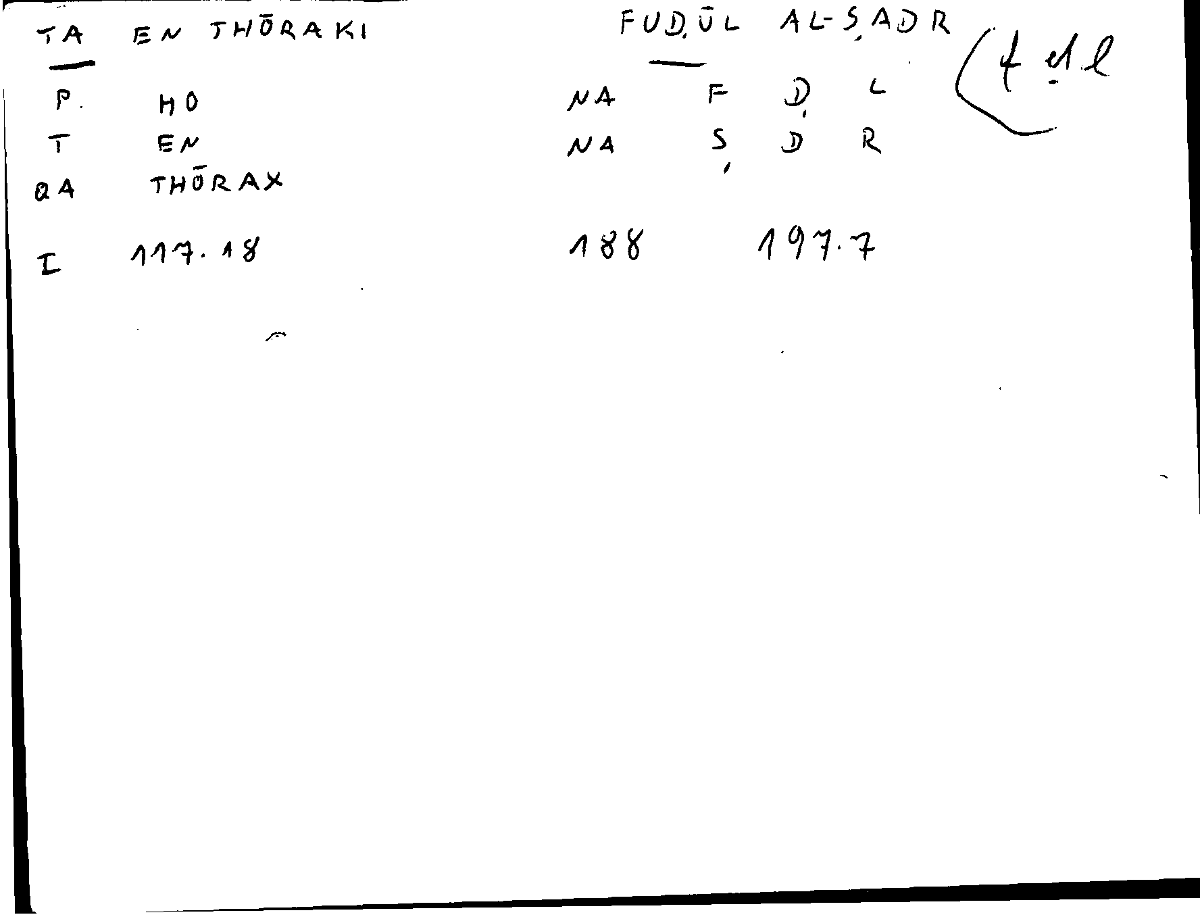 TA EN THŌRAKI FUḌŪL AL-ṢADR (fḍl
P. HO NA F Ḍ L
T EN NA Ṣ D R
QA THŌRAX
I 117.18 188 197.7